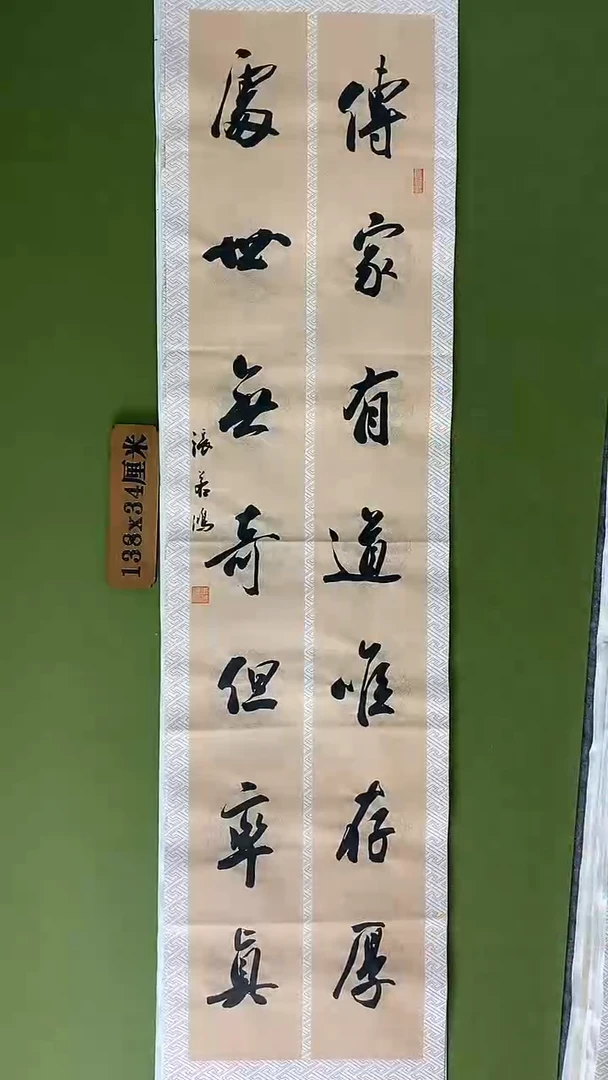 傳家有道唯存厚
處世無奇但率真
張若鴻
138x34厘米